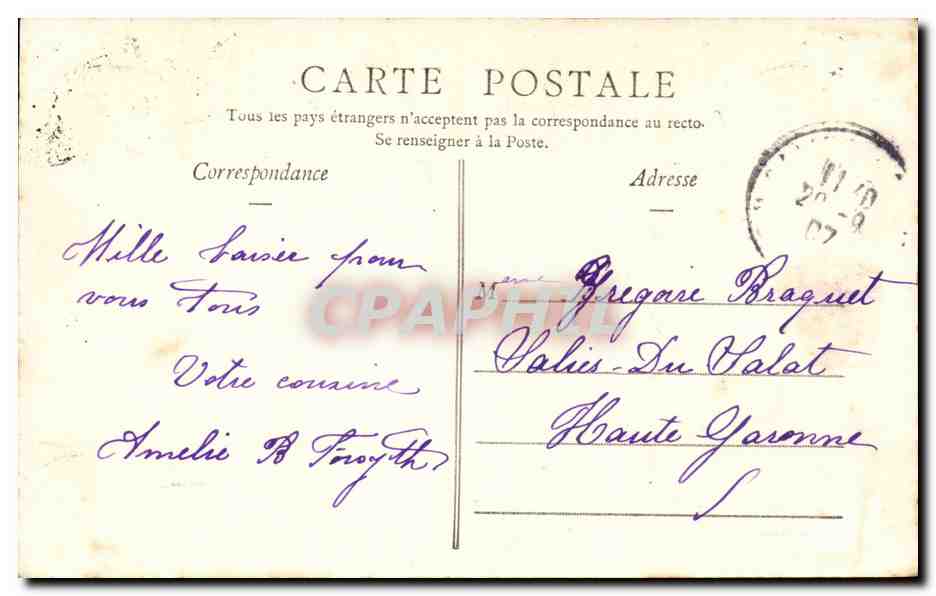 CARTE POSTALE
Tous les pays étrangers n'acceptent pas la correspondance au recto.
Se renseigner à la Poste.
Correspondance
Mille baiser pour
vous tous
Votre cousine
Amelie B Forsyth
Adresse
Meme Gregoire Braquet
Salies-Du Salat
Haute Garonne
CPAPHIL
07